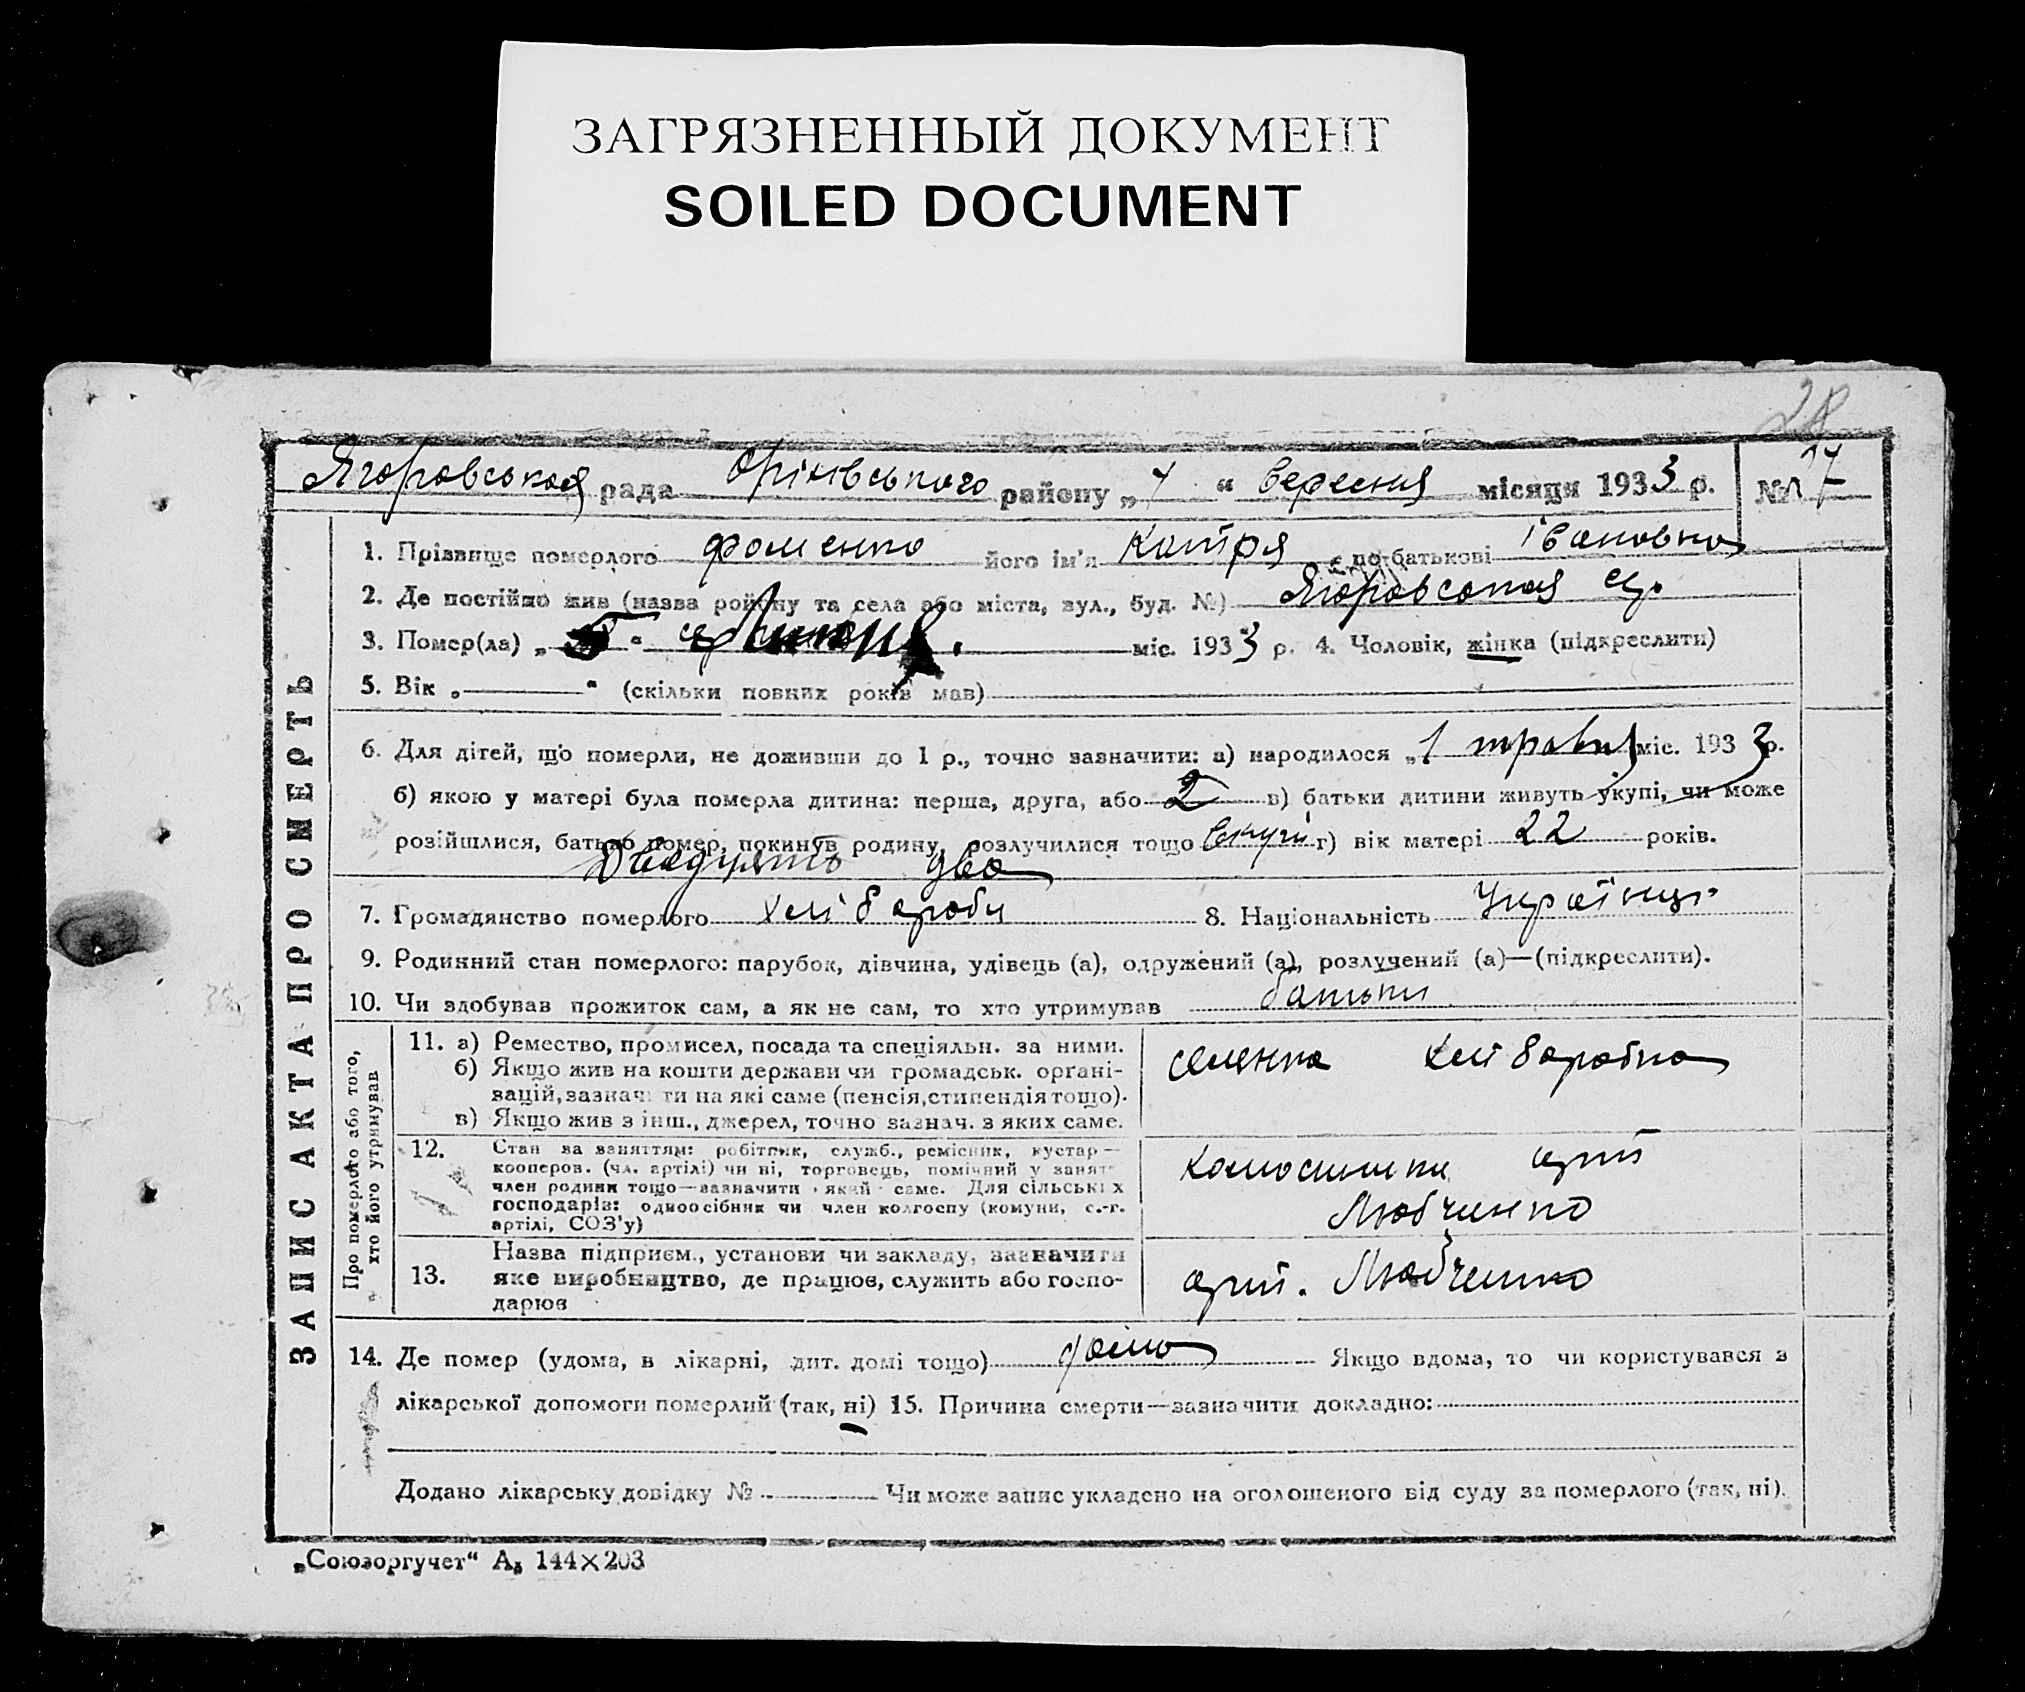 ЗАГРЯЗНЕННЫЙ ДОКУМЕНТ
SOILED DOCUMENT
28
Ягоровськая рада Орінівського району „4“ вересня місяця 1933 р. № 17
1. Прізвище померлого Фоменко його ім'я Катря по батькові Івановна
2. Де постійно жив (назва району та села або міста, вул., буд. №) Ягоровская
3. Помер(ла) „5“ міс. 1933 р. 4. Чоловік, жінка (підкреслити)
5. Вік „ “ (скільки повних років мав)
6. Для дітей, що померли, не доживши до 1 р., точно зазначити: а) народилося „1 травня міс. 1933 р.
б) якою у матері була померла дитина: перша, друга, або 2 в) батьки дитини живуть укупі, чи може
розійшлися, батько помер, покинув родину, розлучилися тощо вкупі г) вік матері 22 років.
Двадцять два
7. Громадянство померлого хліборобы 8. Національність Українці
9. Родинний стан померлого: парубок, дівчина, удівець (а), одружений (а), розлучений (а)—(підкреслити).
10. Чи здобував прожиток сам, а як не сам, то хто утримував батьки
ЗАПИС АКТА ПРО СМЕРТЬ
Про померлого або того,
хто його утримував
11. а) Ремество, промисел, посада та спеціяльн. за ними.
б) Якщо жив на кошти держави чи громадськ. орґані-
зацій, зазначити на які саме (пенсія, стипендія тощо).
в) Якщо жив з інш., джерел, точно зазнач. з яких саме.
хліборобка
12. Стан за заняттям: робітник, служб., ремісник, кустар—
кооперов. (чл. артілі) чи ні, торговець, помічний у занят-
член родини тощо—зазначити який саме. Для сільських
господарів: одноосібник чи член колгоспу (комуни, с.-г.
артілі, СОЗ'у)
арті
Любченко
13. Назва підприєм., установи чи закладу, зазначити
яке виробництво, де працює, служить або госпо-
дарює
арті. Любченко
14. Де помер (удома, в лікарні, дит. домі тощо) дома Якщо вдома, то чи користувався з
лікарської допомоги померлий (так, ні) 15. Причина смерти—зазначити докладно:
Додано лікарську довідку № Чи може запис укладено на оголошеного від суду за померлого (так, ні).
„Союзоргучет“ А₅ 144×203